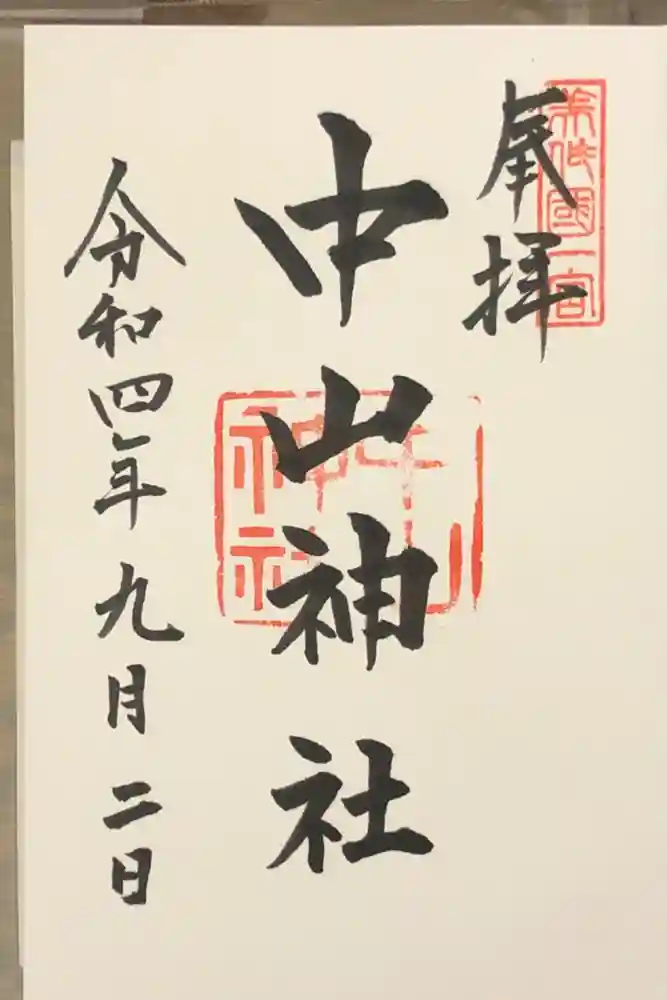 奉拝
美作國一宮
中山神社
中山神社
令和四年九月二日